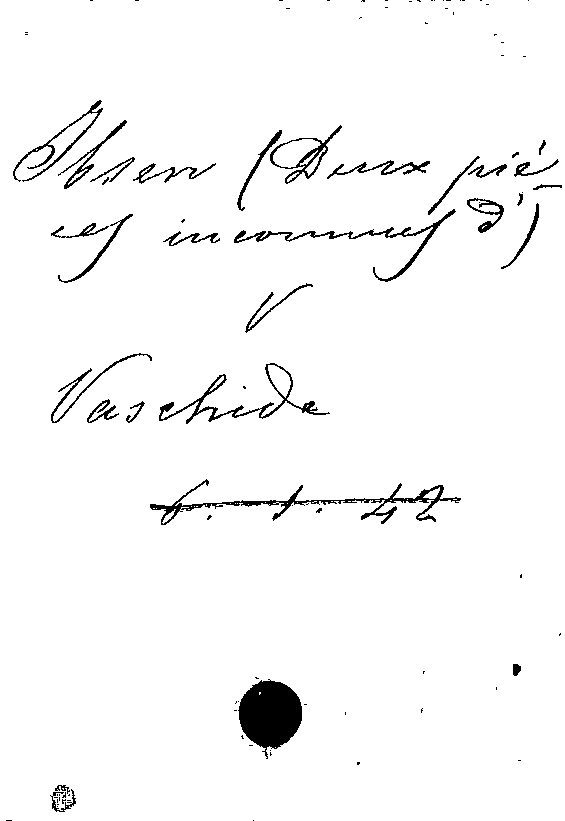 Ibsen (Deux piè-
ces inconnues d')
V
Vaschide
6. 1. 42